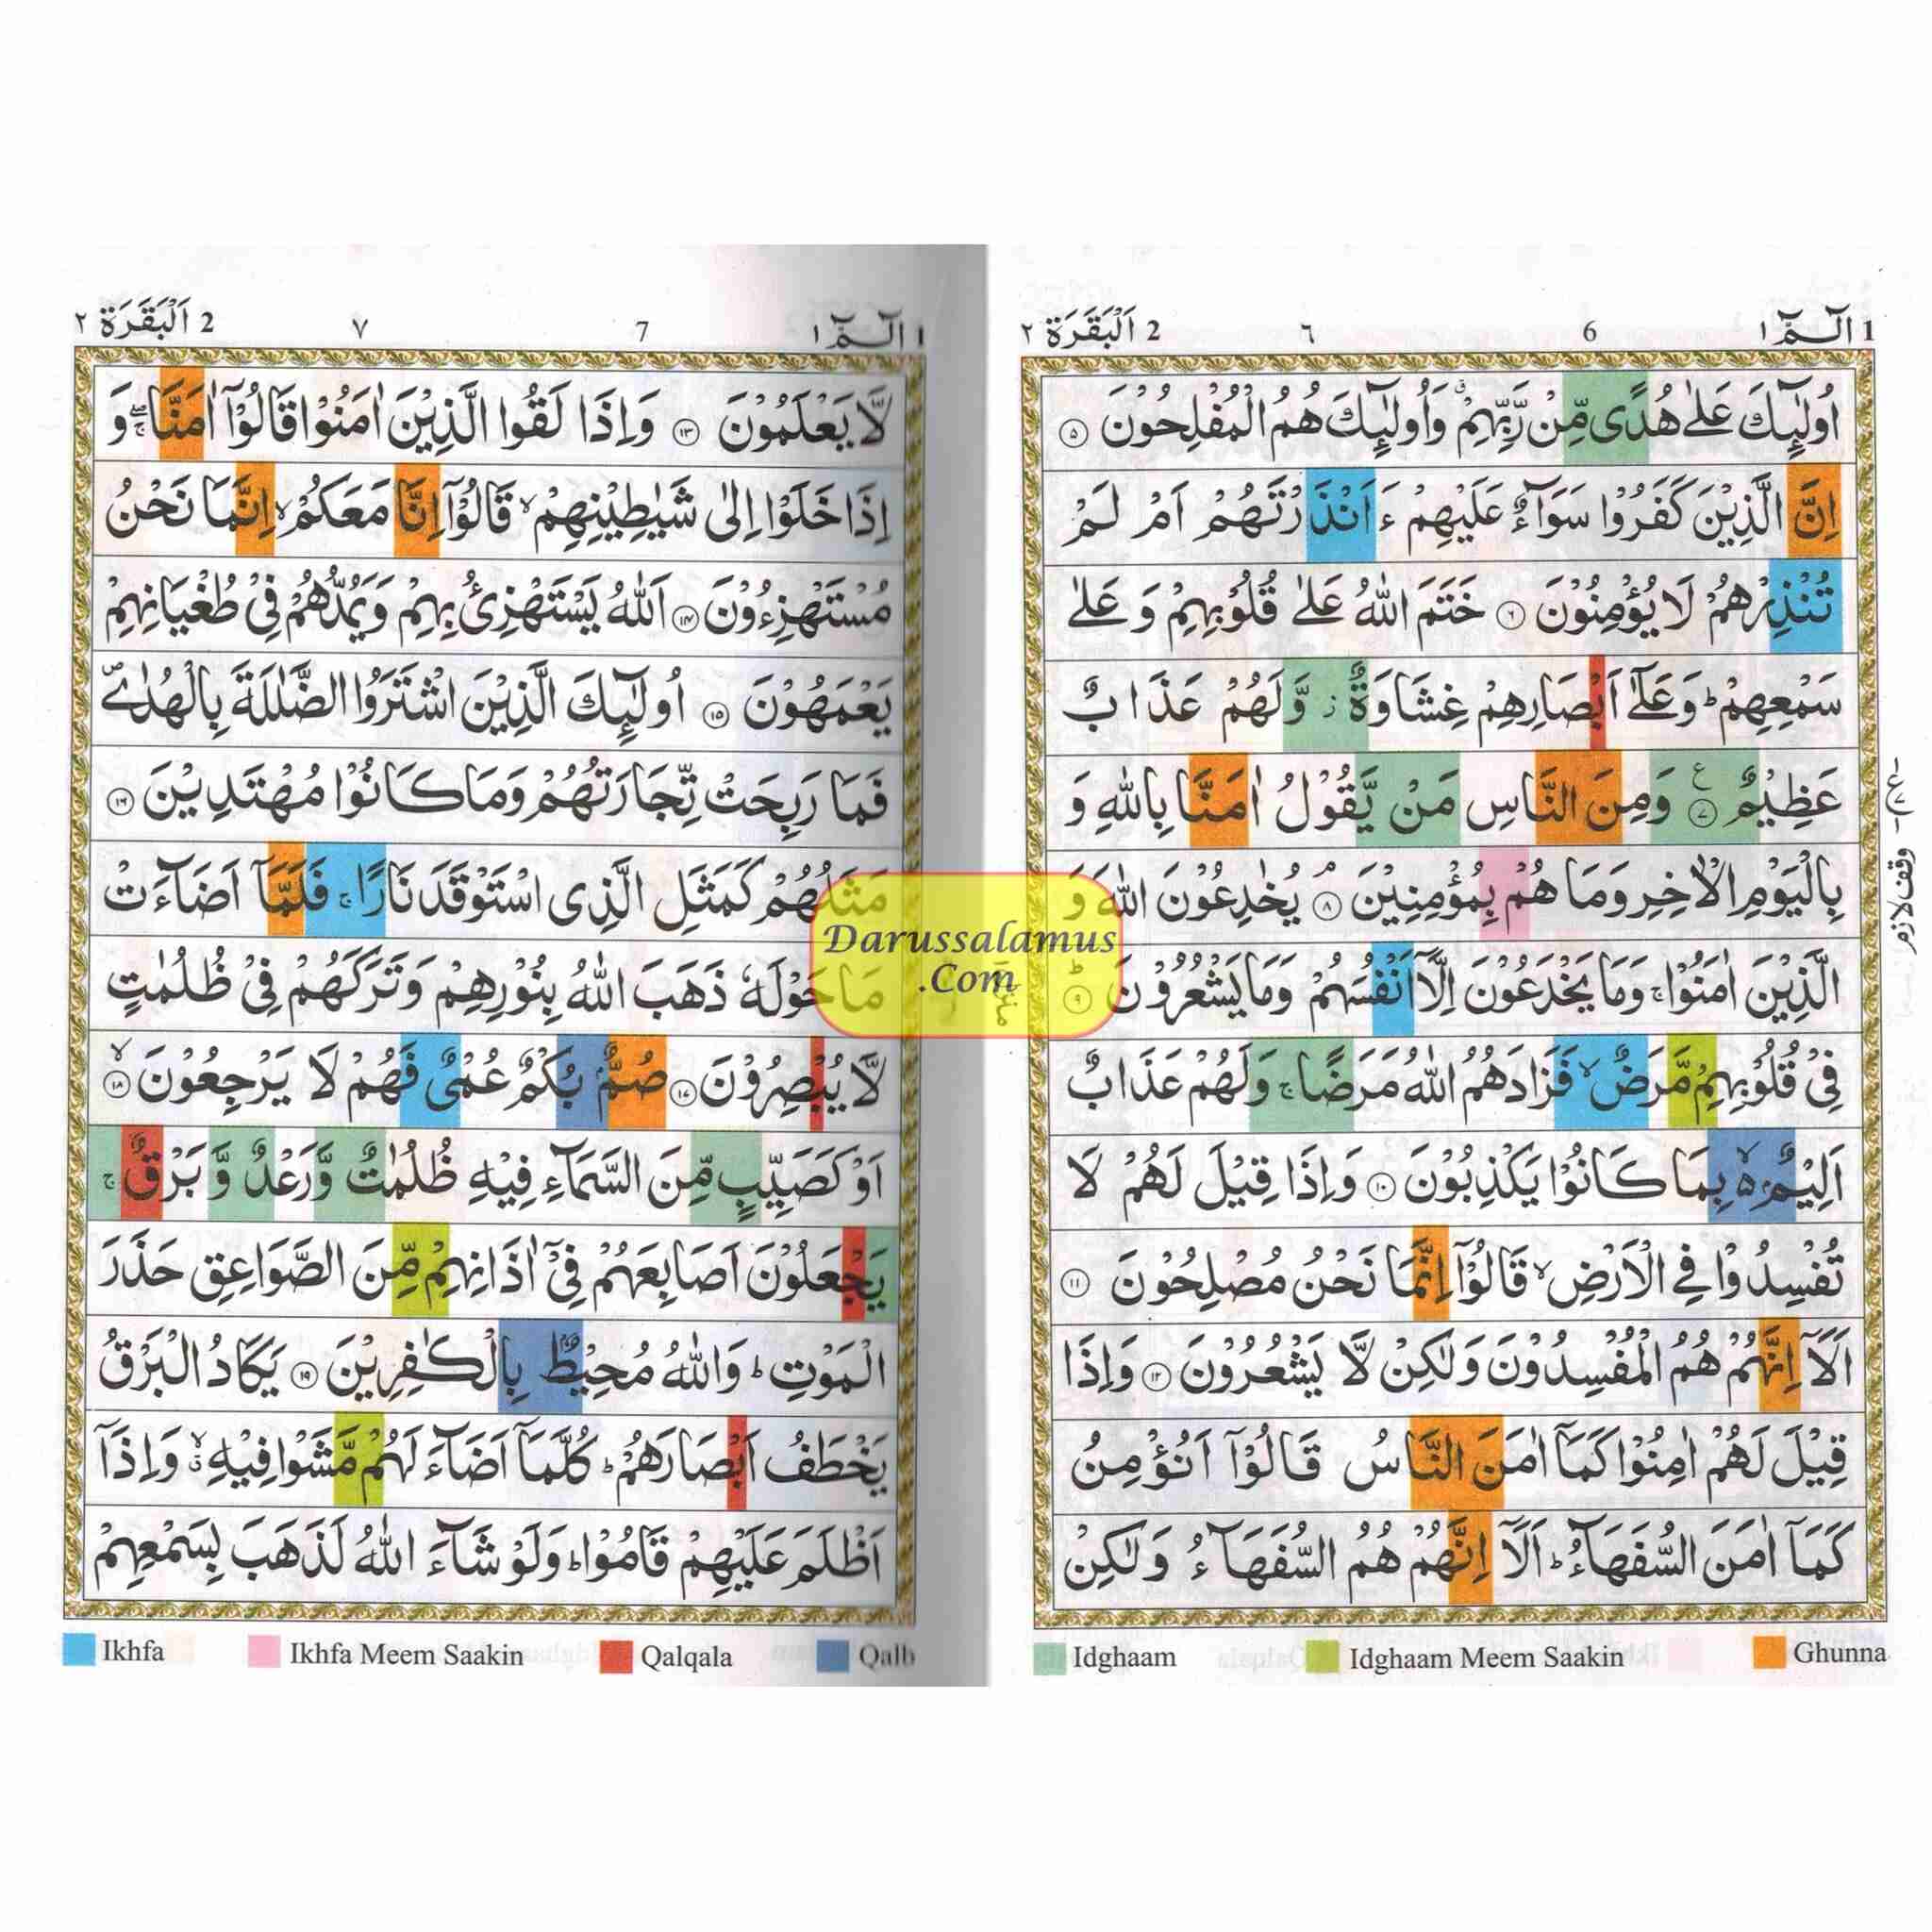 1 الٓـمّٓ ١
6
٦
2 اَلْبَقَرَة ٢
اُولٰٓئِكَ عَلٰى هُدًى مِّنْ رَّبِّهِمْ ۗ وَاُولٰٓئِكَ هُمُ الْمُفْلِحُوْنَ ۝٥
اِنَّ الَّذِيْنَ كَفَرُوْا سَوَآءٌ عَلَيْهِمْ ءَاَنْذَرْتَهُمْ اَمْ لَمْ
تُنْذِرْهُمْ لَا يُؤْمِنُوْنَ ۝٦ خَتَمَ اللّٰهُ عَلٰى قُلُوْبِهِمْ وَ عَلٰى
سَمْعِهِمْ ؕ وَعَلٰٓى اَبْصَارِهِمْ غِشَاوَةٌ ز وَّلَهُمْ عَذَابٌ
عَظِيْمٌ ۝٧ ع وَمِنَ النَّاسِ مَنْ يَّقُوْلُ اٰمَنَّا بِاللّٰهِ وَ
بِالْيَوْمِ الْاٰخِرِ وَمَا هُمْ بِمُؤْمِنِيْنَ ۘ ۝٨ يُخٰدِعُوْنَ اللّٰهَ وَ
الَّذِيْنَ اٰمَنُوْا ۚ وَمَا يَخْدَعُوْنَ اِلَّآ اَنْفُسَهُمْ وَمَا يَشْعُرُوْنَ ؕ ۝٩
فِيْ قُلُوْبِهِمْ مَّرَضٌ ۙ فَزَادَهُمُ اللّٰهُ مَرَضًا ۚ وَلَهُمْ عَذَابٌ
اَلِيْمٌ ۢ ۙ بِمَا كَانُوْا يَكْذِبُوْنَ ۝١٠ وَاِذَا قِيْلَ لَهُمْ لَا
تُفْسِدُوْا فِى الْاَرْضِ ۙ قَالُوْٓا اِنَّمَا نَحْنُ مُصْلِحُوْنَ ۝١١
اَلَآ اِنَّهُمْ هُمُ الْمُفْسِدُوْنَ وَلٰكِنْ لَّا يَشْعُرُوْنَ ۝١٢ وَاِذَا
قِيْلَ لَهُمْ اٰمِنُوْا كَمَآ اٰمَنَ النَّاسُ قَالُوْٓا اَنُؤْمِنُ
كَمَآ اٰمَنَ السُّفَهَآءُ ؕ اَلَآ اِنَّهُمْ هُمُ السُّفَهَآءُ وَلٰكِنْ
وقف لازم
Idghaam
Idghaam Meem Saakin
Ghunna
1 الٓـمّٓ ١
7
٧
2 اَلْبَقَرَة ٢
لَّا يَعْلَمُوْنَ ۝١٣ وَاِذَا لَقُوا الَّذِيْنَ اٰمَنُوْا قَالُوْٓا اٰمَنَّا ۖۚ وَ
اِذَا خَلَوْا اِلٰى شَيٰطِيْنِهِمْ ۙ قَالُوْٓا اِنَّا مَعَكُمْ ۙ اِنَّمَا نَحْنُ
مُسْتَهْزِءُوْنَ ۝١٤ اَللّٰهُ يَسْتَهْزِئُ بِهِمْ وَيَمُدُّهُمْ فِيْ طُغْيَانِهِمْ
يَعْمَهُوْنَ ۝١٥ اُولٰٓئِكَ الَّذِيْنَ اشْتَرَوُا الضَّلٰلَةَ بِالْهُدٰى ۪
فَمَا رَبِحَتْ تِّجَارَتُهُمْ وَمَا كَانُوْا مُهْتَدِيْنَ ۝١٦
مَثَلُهُمْ كَمَثَلِ الَّذِى اسْتَوْقَدَ نَارًا ۚ فَلَمَّآ اَضَآءَتْ
مَا حَوْلَهٗ ذَهَبَ اللّٰهُ بِنُوْرِهِمْ وَتَرَكَهُمْ فِيْ ظُلُمٰتٍ
لَّا يُبْصِرُوْنَ ۝١٧ صُمٌّۢ بُكْمٌ عُمْىٌ فَهُمْ لَا يَرْجِعُوْنَ ۙ ۝١٨
اَوْ كَصَيِّبٍ مِّنَ السَّمَآءِ فِيْهِ ظُلُمٰتٌ وَّرَعْدٌ وَّبَرْقٌ ۚ
يَجْعَلُوْنَ اَصَابِعَهُمْ فِيْٓ اٰذَانِهِمْ مِّنَ الصَّوَاعِقِ حَذَرَ
الْمَوْتِ ؕ وَاللّٰهُ مُحِيْطٌۢ بِالْكٰفِرِيْنَ ۝١٩ يَكَادُ الْبَرْقُ
يَخْطَفُ اَبْصَارَهُمْ ؕ كُلَّمَآ اَضَآءَ لَهُمْ مَّشَوْا فِيْهِ ۙ ۗ وَاِذَآ
اَظْلَمَ عَلَيْهِمْ قَامُوْا ؕ وَلَوْ شَآءَ اللّٰهُ لَذَهَبَ بِسَمْعِهِمْ
Ikhfa
Ikhfa Meem Saakin
Qalqala
Qalb
Darussalamus
.Com